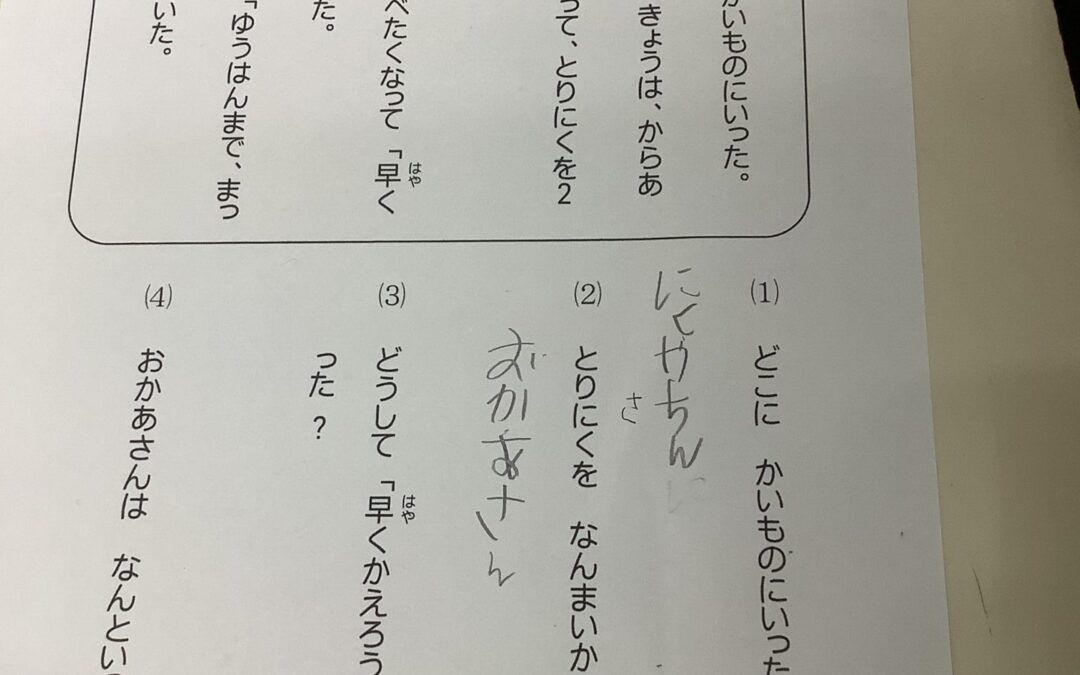 かいものにいった。
きょうは、からあ
って、とりにくを2
べたくなって「早く
はや
た。
「ゆうはんまで、まっ
いた。
(1) どこに かいものにいった
にくやちんに
さ
(2) とりにくを なんまいか
おかあさん
(3) どうして「早くかえろう
はや
った?
(4) おかあさんは なんとい